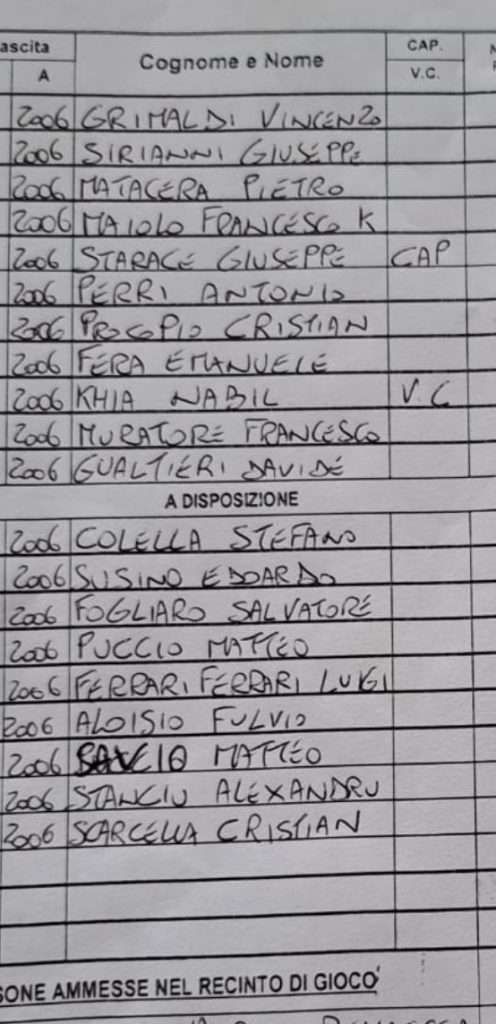 ascita Cognome e Nome CAP.
A V.C.
2006 GRIMALDI VINCENZO
2006 SIRIANNI GIUSEPPE
2006 MATACERA PIETRO
2006 MAIOLO FRANCESCO K
2006 STARACE GIUSEPPE CAP
2006 PERRI ANTONIO
2006 PROCOPIO CRISTIAN
2006 FERA EMANUELE
2006 KHIA NABIL V.C
2006 MURATORE FRANCESCO
2006 GUALTIERI DAVIDE
A DISPOSIZIONE
2006 COLELLA STEFANO
2006 SUSINO EDOARDO
2006 FOGLIARO SALVATORE
2006 PUCCIO MATTEO
2006 FERRARI FERRARI LUIGI
2006 ALOISIO FULVIO
2006 MATTEO
2006 STANCIU ALEXANDRU
2006 SCARCELLA CRISTIAN
SONE AMMESSE NEL RECINTO DI GIOCO